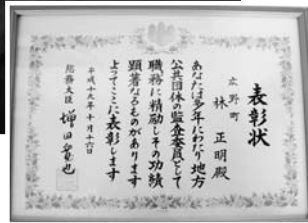 表彰状
広野町
林 正明殿
あなたは多年にわたり地方
公共団体の監査委員として
職務に精励しその功績
顕著なるものがあります
よってここに表彰します
平成十九年十月十六日
総務大臣 増田寛也